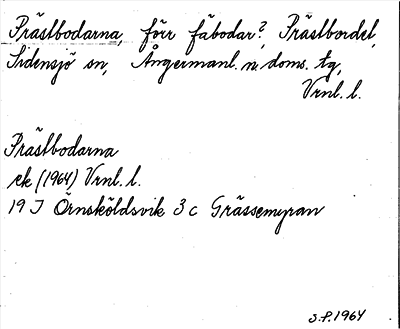 Prästbodarna, förr fäbodar?, Prästbordet,
Sidensjö sn, Ångermanl. n. doms. tg,
Vrnl. l.
Prästbodarna
ek (1964) Vrnl. l.
19 J Örnsköldsvik 3 c Grässemyran
S.P. 1964